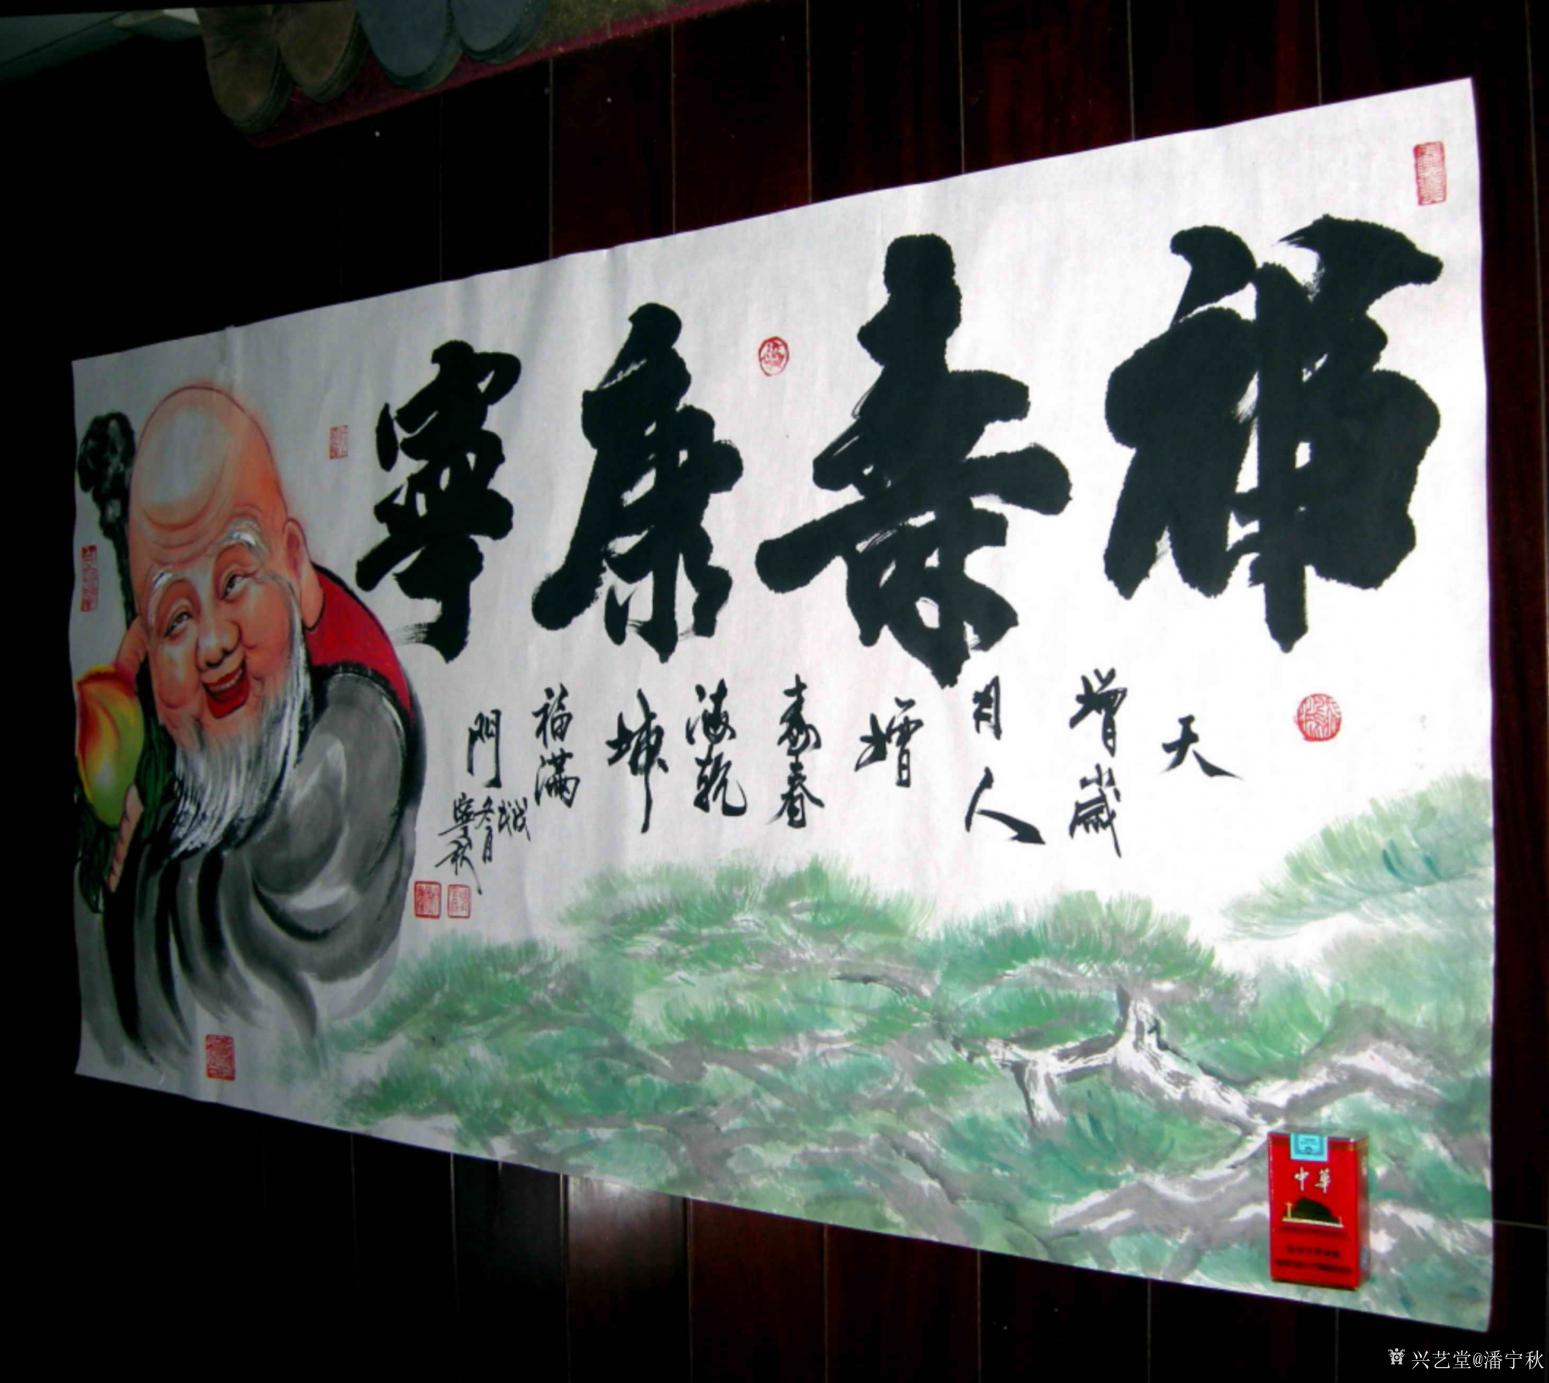 福寿康寧
天
增歲
月人
增
寿春
滿乾
坤
福滿
門
戊戌
冬月
寧秋
中華
兴艺堂@潘宁秋